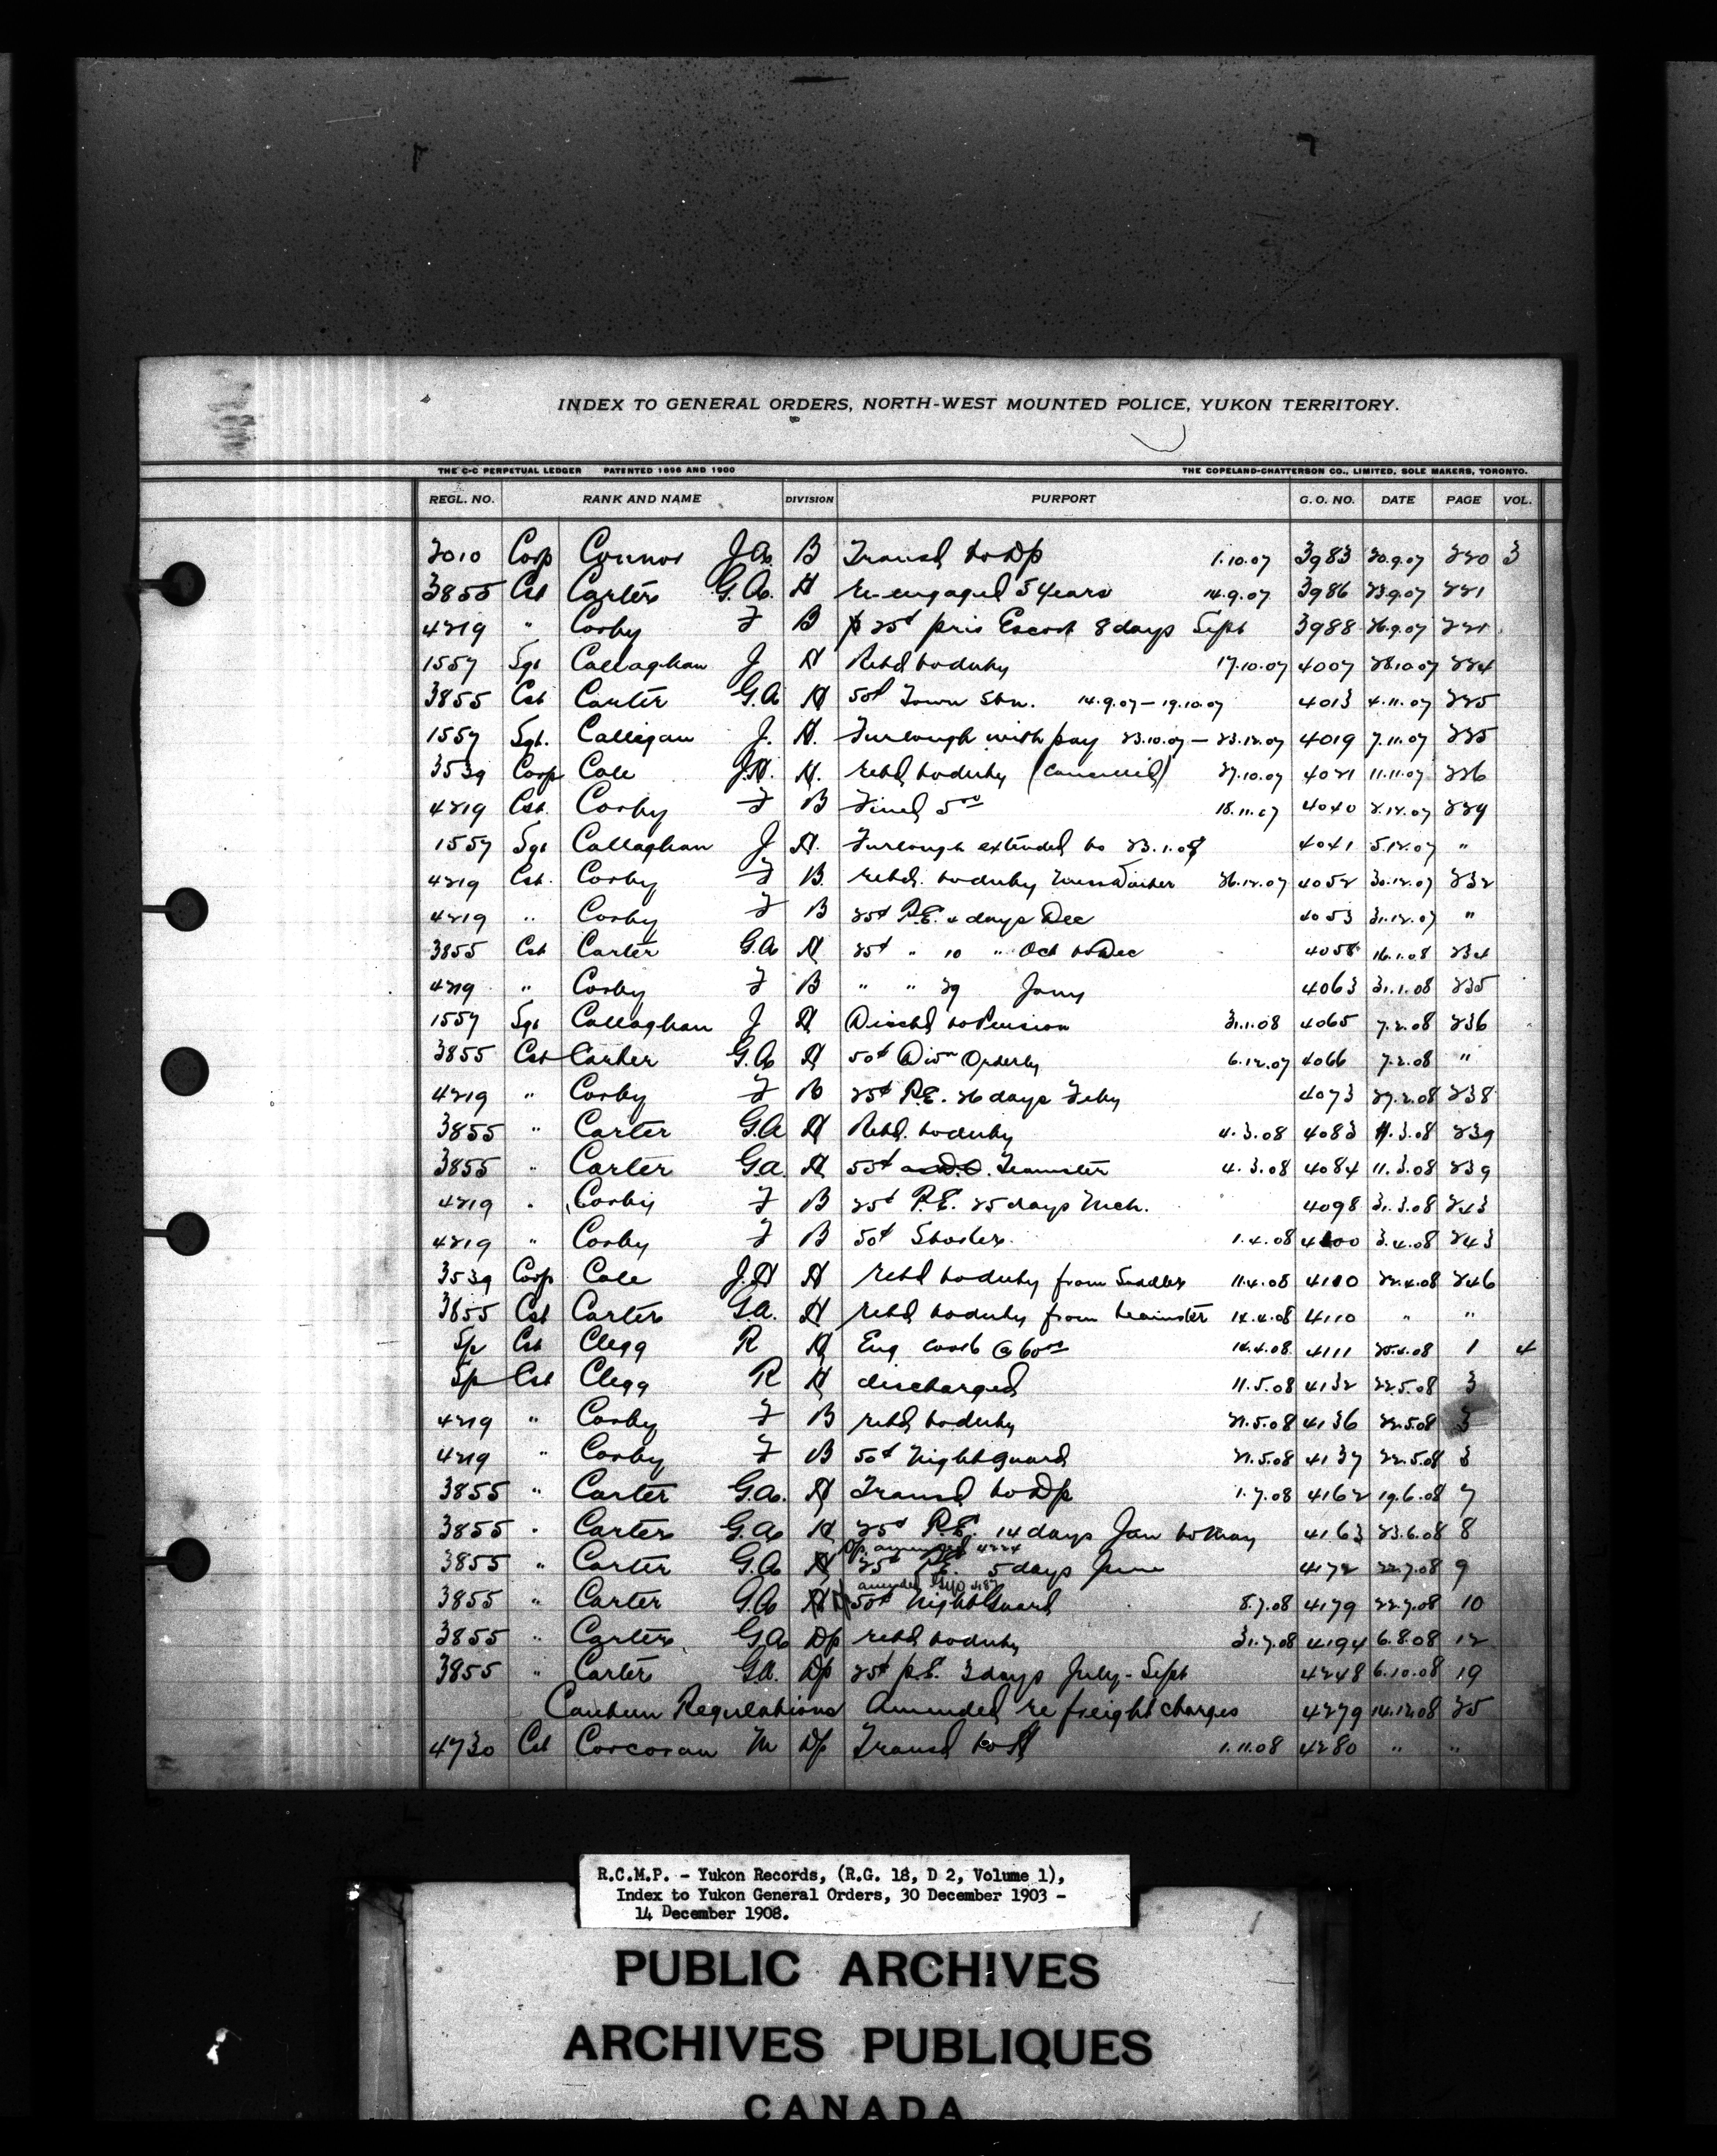 INDEX TO GENERAL ORDERS, NORTH-WEST MOUNTED POLICE, YUKON TERRITORY.
THE C-C PERPETUAL LEDGER PATENTED 1896 AND 1900 THE COPELAND-CHATTERSON CO., LIMITED, SOLE MAKERS, TORONTO.
REGL. NO. RANK AND NAME DIVISION PURPORT G. O. NO. DATE PAGE VOL.
2010 Corp Connor J.A. B Transd to Dp 1.10.07 3983 20.9.07 220 3
3855 Cst Carter G.A. H re-engaged 5 years 14.9.07 3986 23.9.07 221
4219 " Corby F B 25¢ pris Escort 8 days Sept 3988 26.9.07 221
1557 Sgt Callaghan J H Retd to duty 17.10.07 4007 28.10.07 224
3855 Cst Carter G.A H 50¢ Town Stn. 14.9.07 – 19.10.07 4013 4.11.07 225
1557 Sgt. Calligan J. H. Furlough with pay 23.10.07 – 23.12.07 4019 7.11.07 225
3539 Corp Cole J.H. H. retd to duty (cancelled) 27.10.07 4021 11.11.07 226
4219 Cst. Corby F B Fined 5.00 18.11.07 4040 2.12.07 229
1557 Sgt Callaghan J H. Furlough extended to 23.1.08 4041 5.12.07 "
4219 Cst. Corby F B. retd. to duty 26.12.07 4052 30.12.07 232
4219 " Corby F B 25¢ P.E. 4 days Dec 4053 31.12.07 "
3855 Cst Carter G.A H 25¢ " 10 " Oct to Dec 4058 16.1.08 234
4219 " Corby F B " " 29 Jany 4063 31.1.08 235
1557 Sgt Callaghan J H Dischd to Pension 31.1.08 4065 7.2.08 236
3855 Cst Carter G.A H 50¢ Divn Orderly 6.12.07 4066 7.2.08 "
4219 " Corby F B 25¢ P.E. 26 days Feby 4073 27.2.08 238
3855 " Carter G.A H Retd. to duty 4.3.08 4083 11.3.08 239
3855 " Carter G.A H 50¢ as D.O. Teamster 4.3.08 4084 11.3.08 239
4219 " Corby F B 25¢ P.E. 25 days Mch. 4098 31.3.08 243
4219 " Corby F B 50¢ 1.4.08 4100 3.4.08 243
3539 Corp Cole J.H H retd to duty from Saddler 11.4.08 4110 22.4.08 246
3855 Cst Carter G.A. H retd to duty from teamster 14.4.08 4110 " "
Sp Cst Clegg R H Eng cook @ 60.00 14.4.08 4111 25.4.08 1 4
Sp Cst Clegg R H discharged 11.5.08 4132 22.5.08 3
4219 " Corby F B retd to duty 21.5.08 4136 22.5.08 3
4219 " Corby F B 50¢ Night Guard 21.5.08 4137 22.5.08 3
3855 " Carter G.A. H Transd to Dp 1.7.08 4162 19.6.08 7
3855 " Carter G.A H 25¢ P.E. 14 days Jan to May 4163 23.6.08 8
Dp. amended 4224
3855 " Carter G.A H 25¢ P.E. 5 days June 4172 22.7.08 9
amended 4187
3855 " Carter G.A H 50¢ Night Guard 8.7.08 4179 22.7.08 10
3855 " Carter G.A Dp retd to duty 31.7.08 4194 6.8.08 12
3855 " Carter G.A. Dp 25¢ p.E. 3 days July - Sept 4248 6.10.08 19
Canteen Regulations Amended re freight charges 4279 14.12.08 25
4730 Cst Corcoran M Dp Transd to H 1.11.08 4280 " "
R.C.M.P. - Yukon Records, (R.G. 18, D 2, Volume 1),
Index to Yukon General Orders, 30 December 1903 -
14 December 1908.
PUBLIC ARCHIVES
ARCHIVES PUBLIQUES
CANADA